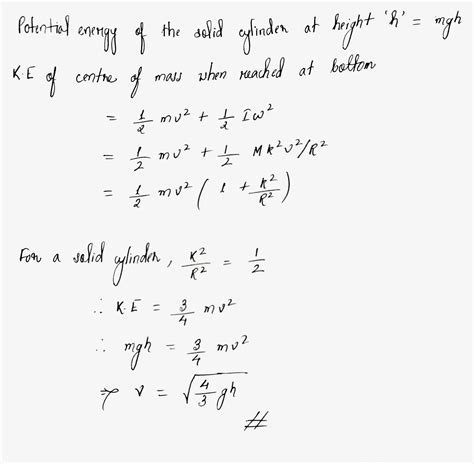 Potential energy of the solid cylinder at height 'h' = mgh
K.E of centre of mass when reached at bottom
= 1/2 mv² + 1/2 Iω²
= 1/2 mv² + 1/2 Mk²v²/R²
= 1/2 mv² (1 + K²/R²)
For a solid cylinder, K²/R² = 1/2
∴ K.E = 3/4 mv²
∴ mgh = 3/4 mv²
⇒ v = √(4/3 gh)